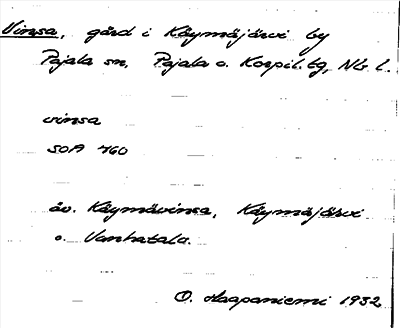 Vinsa, gård i Käymäjärvi by
Pajala sn, Pajala o. Korpil. tg, Nb. l.
vinsa
SOA 760
äv. Käymävinsa, Käymäjärvi
o. Vanhatalo.
O. Haapaniemi 1932